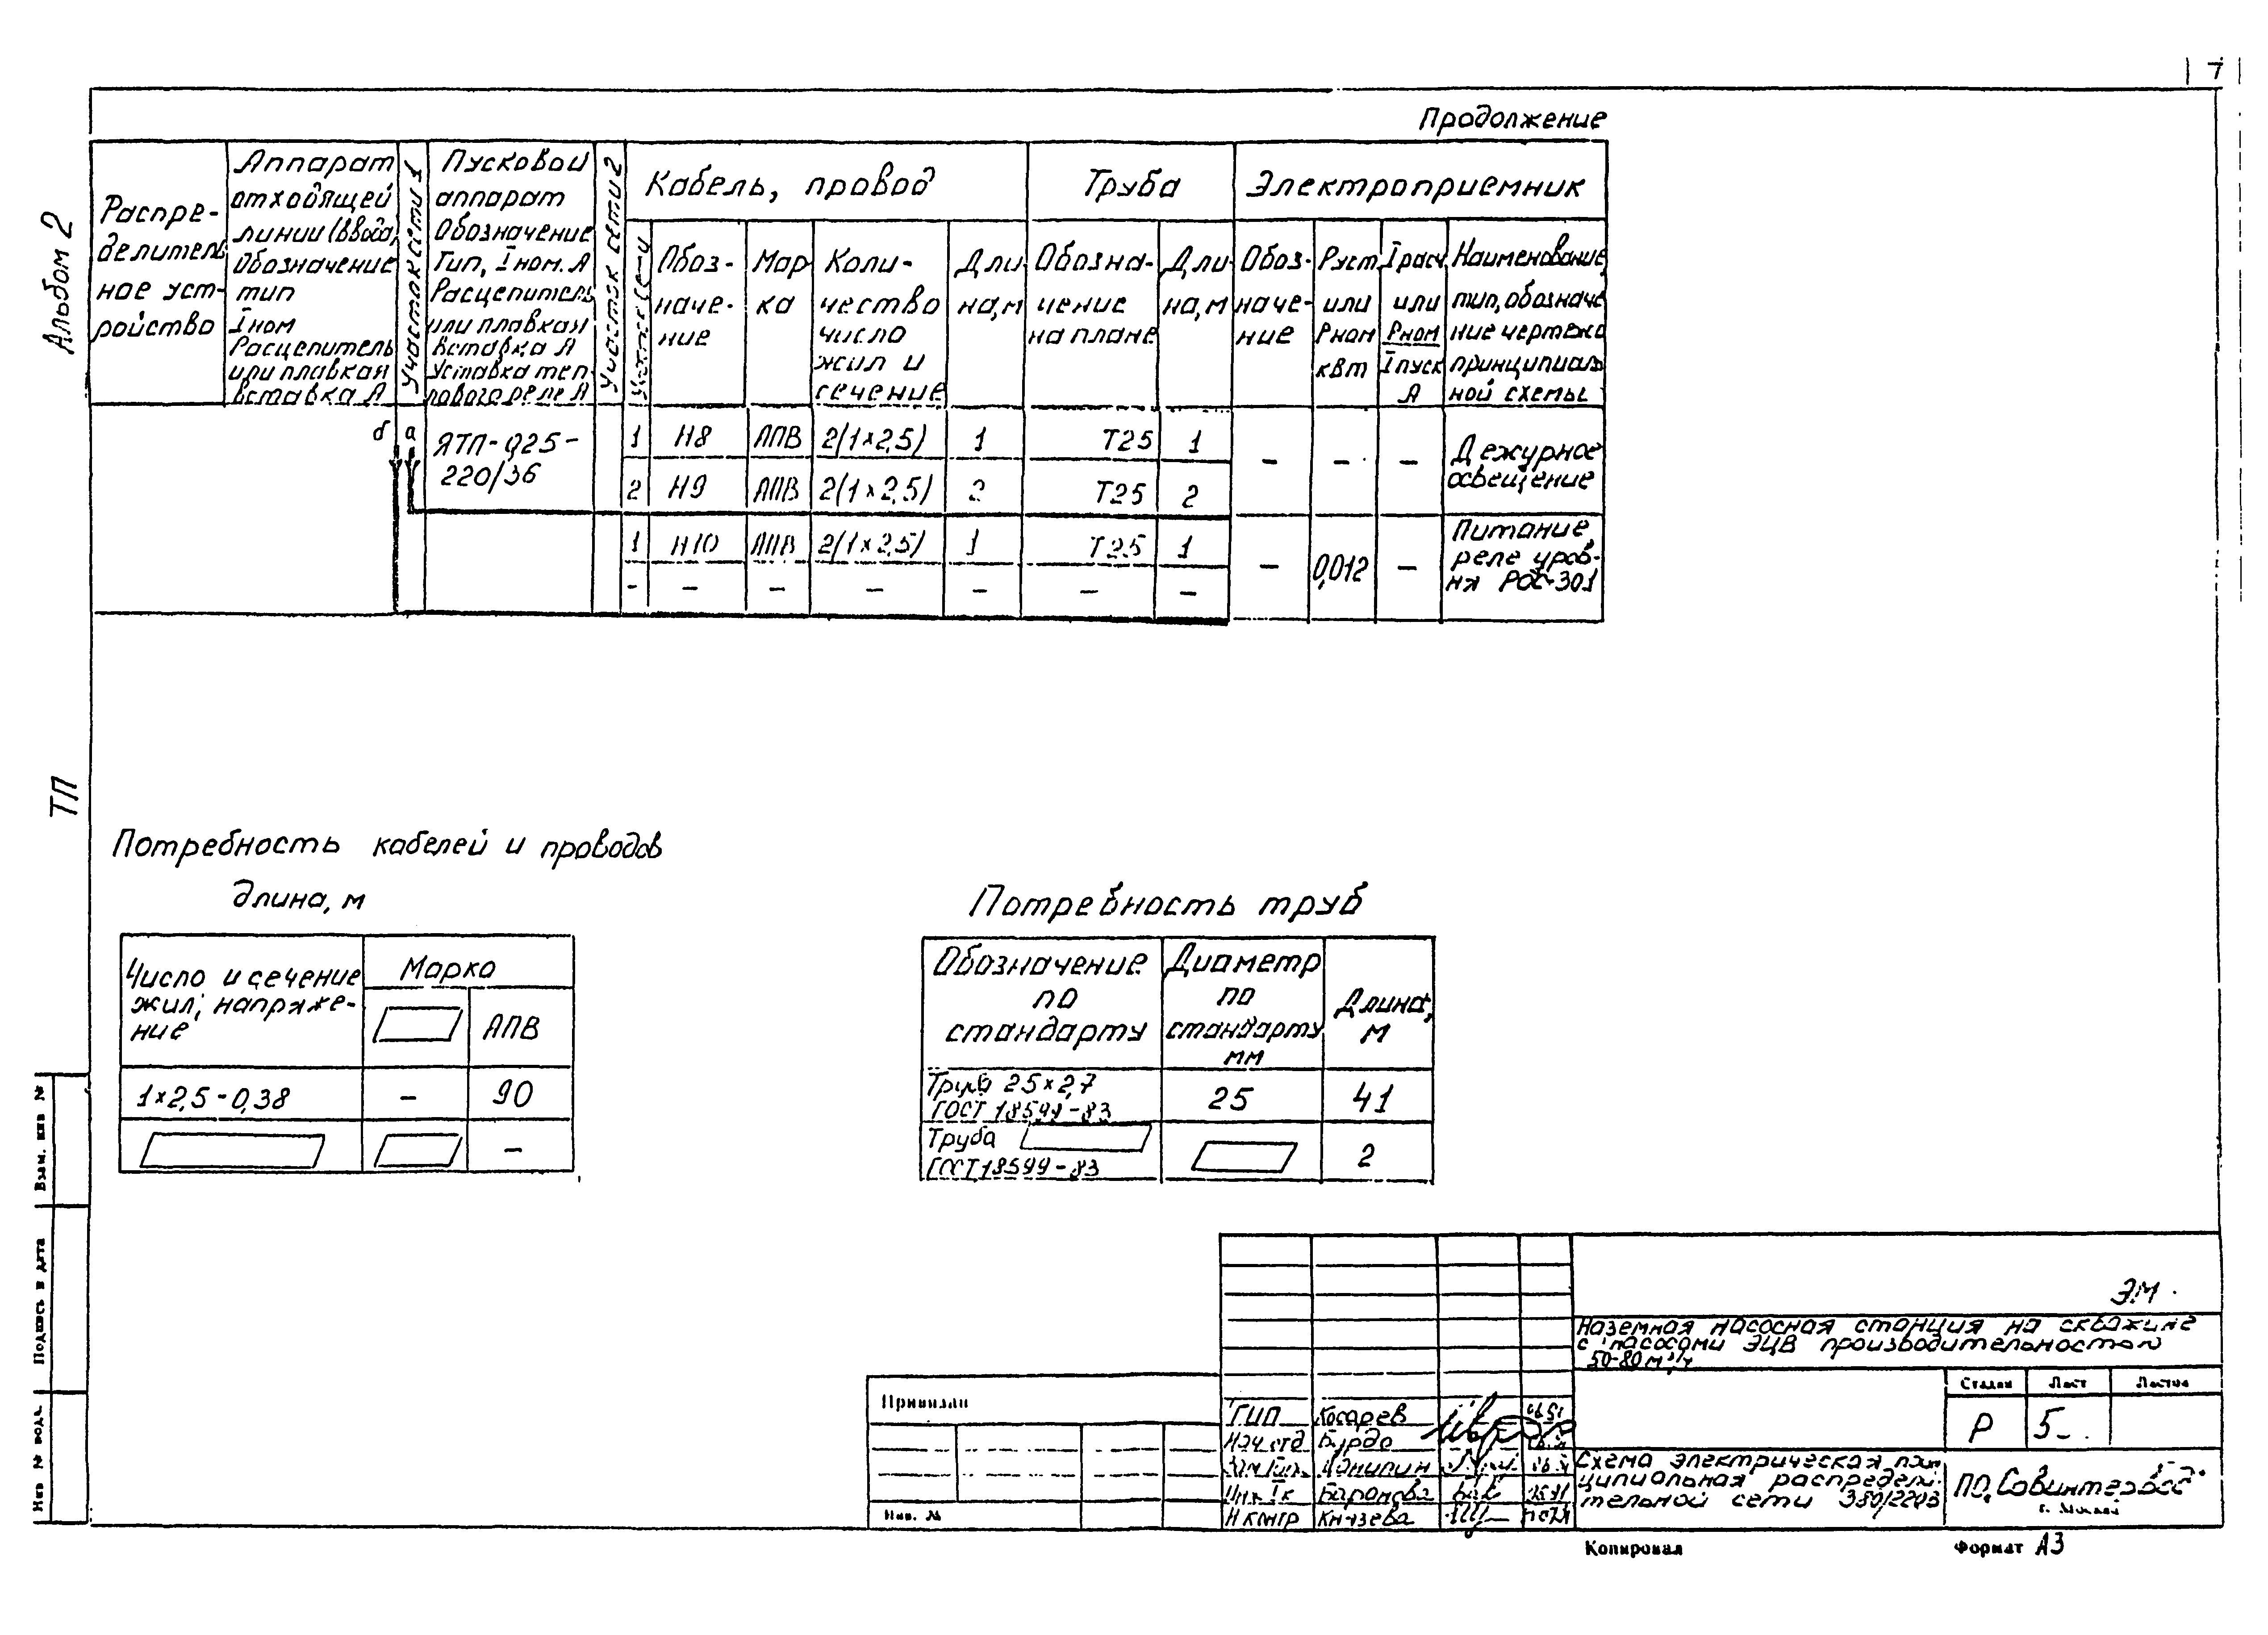 7
Продолжение
Альбом 2
ТП
Распре-
делитель
ное уст-
ройство
Аппарат
отходящей
линии (ввода)
Обозначение
тип
Iном
Расцепитель
или плавкая
вставка А
Участок сети 1
Пусковой
аппарат
Обозначение
Тип, Iном. А
Расцепитель
или плавкая
вставка А
Уставка теп-
лового реле А
Участок сети 2
Участок сети
Кабель, провод
Обоз-
наче-
ние
Мар
ка
Коли-
чество
число
жил и
сечение
Дли
на, м
Труба
Обозна-
чение
на плане
Дли
на, м
Электроприемник
Обоз-
наче-
ние
Руст
или
Рном
кВт
Iрасч
или
Рном
Iпуск
А
Наименование,
тип, обозначе
ние чертежа
принципиаль
ной схемы
б а
ЯТП-0,25-
220/36
1 Н8 АПВ 2(1×2,5) 1 Т25 1
2 Н9 АПВ 2(1×2,5) 2 Т25 2
- - -
Дежурное
освещение
1 Н10 АПВ 2(1×2,5) 1 Т25 1
- - - - - - -
- 0,012 -
Питание
реле уров-
ня РОС-301
Потребность кабелей и проводов
длина, м
Число и сечение
жил, напряже-
ние
Марка
АПВ
1×2,5-0,38 - 90
-
Потребность труб
Обозначение
по
стандарту
Диаметр
по
стандарту
мм
Длина,
м
Труба 25×2,7
ГОСТ 18599-83
25 41
Труба
ГОСТ 18599-83
2
Взам. инв №
Подпись и дата
Инв № подл.
Привязан
Инв. №
ГИП Косарев
Нач отд Бурдо
Инж Iк Баранова
Н контр Князева
ЭМ
Наземная насосная станция на скважине
с насосами ЭЦВ производительностью
50-80 м³/ч
Стадия Лист Листов
Р 5
Схема электрическая прин
ципиальная распредели
тельной сети 380/220В
ПО „Совинтервод"
г. Москва
Копировал
Формат А3